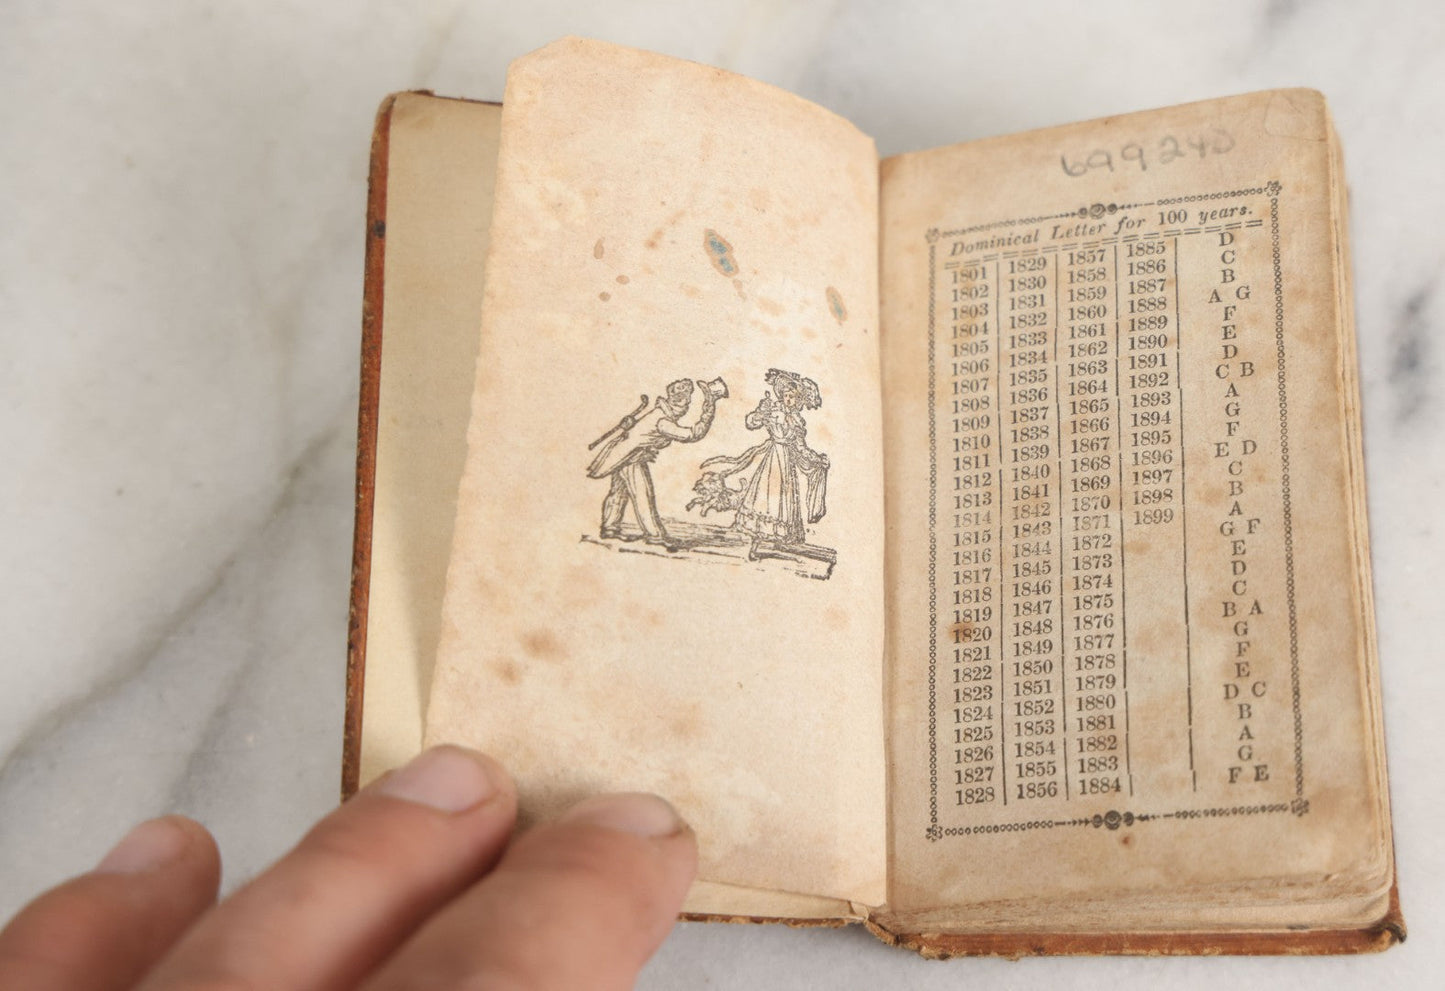 699240
Dominical Letter for 100 years.
1801 1829 1857 1885 D
1802 1830 1858 1886 C
1803 1831 1859 1887 B
1804 1832 1860 1888 A G
1805 1833 1861 1889 F
1806 1834 1862 1890 E
1807 1835 1863 1891 D
1808 1836 1864 1892 C B
1809 1837 1865 1893 A
1810 1838 1866 1894 G
1811 1839 1867 1895 F
1812 1840 1868 1896 E D
1813 1841 1869 1897 C
1814 1842 1870 1898 B
1815 1843 1871 1899 A
1816 1844 1872 G F
1817 1845 1873 E
1818 1846 1874 D
1819 1847 1875 C
1820 1848 1876 B A
1821 1849 1877 G
1822 1850 1878 F
1823 1851 1879 E
1824 1852 1880 D C
1825 1853 1881 B
1826 1854 1882 A
1827 1855 1883 G
1828 1856 1884 F E